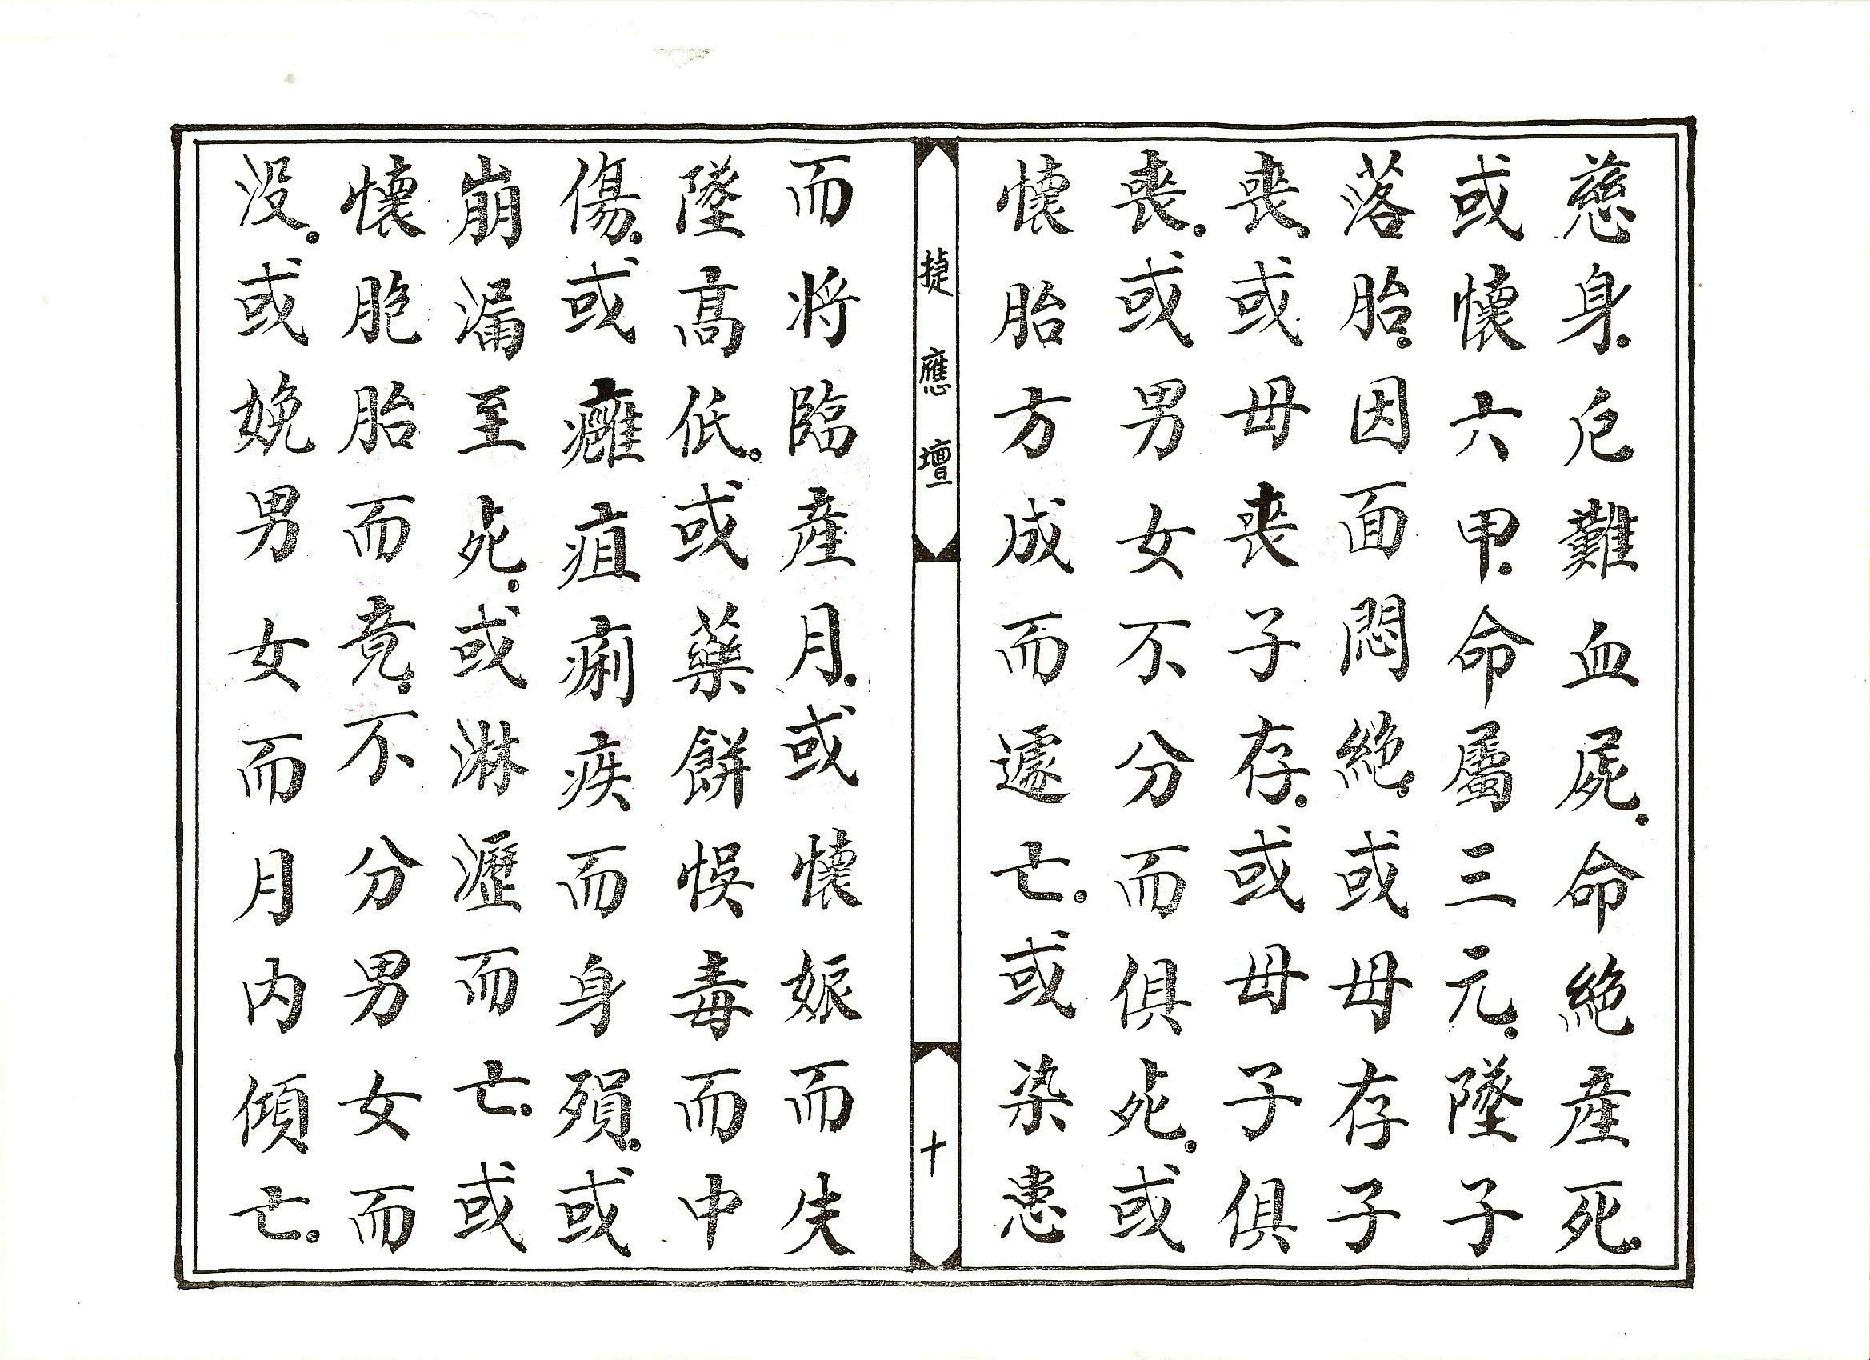 慈身。厄難血屍。命絕產死。
或懷六甲。命屬三元。墜子
落胎。因面悶絕。或母存子
喪。或母喪子存。或母子俱
喪。或男女不分而俱死。或
懷胎方成而遽亡。或染患
捷應壇
十
而將臨產月。或懷娠而失
墜高低。或藥餅悞毒而中
傷。或癰疽痢疾而身殞。或
崩漏至死。或淋瀝而亡。或
懷胞胎而竟。不分男女而
沒。或娩男女而月內傾亡。